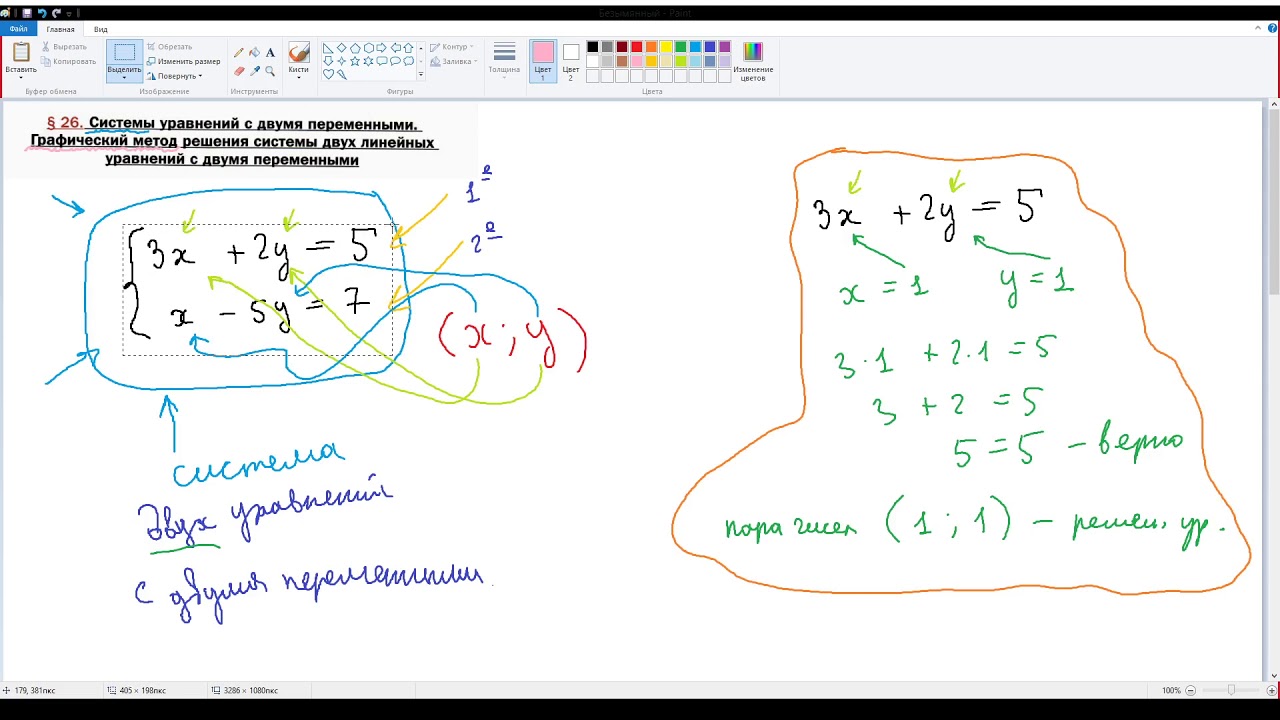 Безымянный - Paint
Файл Главная Вид
Вставить
Вырезать
Копировать
Буфер обмена
Выделить
Обрезать
Изменить размер
Повернуть
Изображение
Инструменты
Кисти
Фигуры
Контур
Заливка
Толщина
Цвет 1
Цвет 2
Изменение цветов
Цвета
§ 26. Системы уравнений с двумя переменными.
Графический метод решения системы двух линейных
уравнений с двумя переменными
3x + 2y = 5
x - 5y = 7
1е
2е
(x ; y)
система
двух уравнений
с двумя переменными
3x + 2y = 5
x = 1 y = 1
3·1 + 2·1 = 5
3 + 2 = 5
5 = 5 - верно
пара чисел (1 ; 1) - решен. ур.
179, 381пкс 405 × 198пкс 3286 × 1080пкс 100%